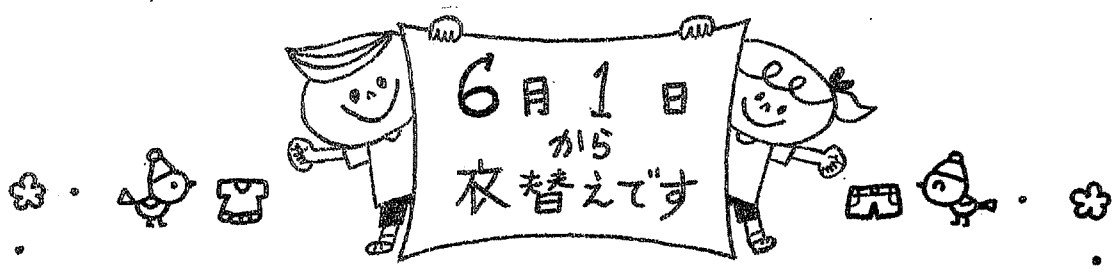 6月1日
から
衣替えです